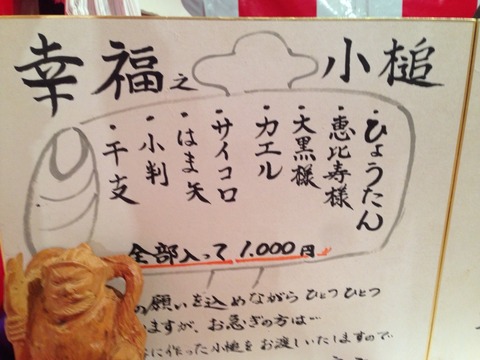 幸福之小槌
・ひょうたん
・恵比寿様
・大黒様
・カエル
・サイコロ
・はま矢
・小判
・干支
全部入って1.000円
の願いを込めながらひとつひとつ
ますが、お急ぎの方は…
に作った小槌をお渡しいたしますので